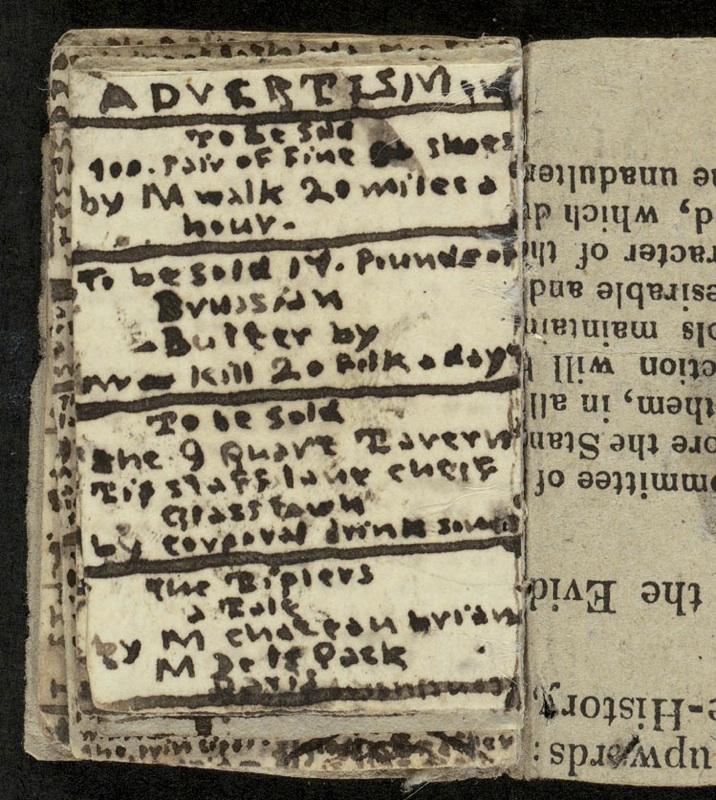 ADVERTISM
To be Sold
100. Pair of Fine shoes
by M walk 20 miles a
hour.
To be sold 14. Pounds of
Brussian
Butter by
kill 20 Folk a day
To be Sold
the 9 Quart Tavern
Tip staff lane cheif
Glass town
by corporal drink
The Biplers
a Tale
by M chateau brian
M De la Pack
he unadulter
d, which d
racter of th
esirable and
ols maintain
ection will
them, in all
ore the Stan
ommittee of
the Evid
e-History,
upwords: